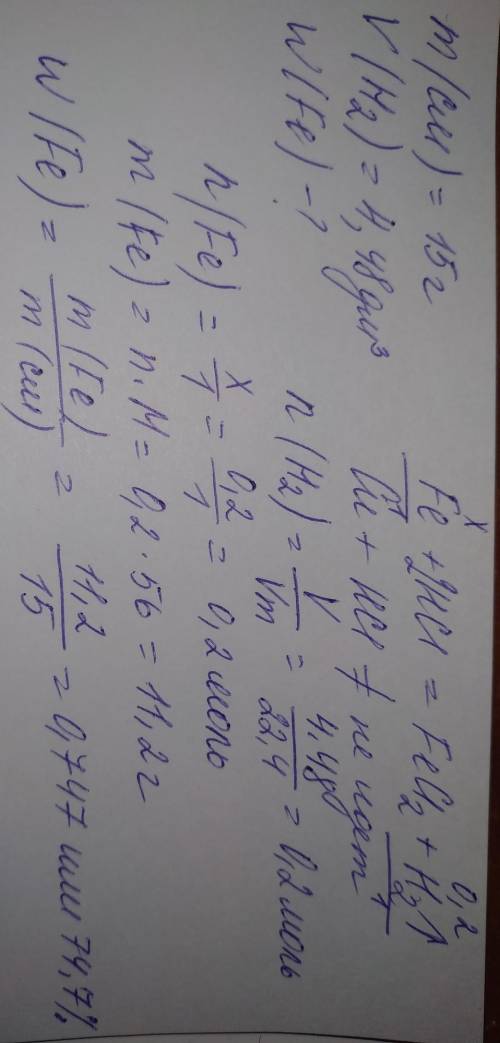 m(см) = 15г
V(H2) = 4,48 дм³
W(Fe) - ?
x 0,2
Fe + 2HCl = FeCl2 + H2↑
1 1
Cu + HCl ≠ не идет
n(H2) = V/Vm = 4,48/22,4 = 0,2 моль
n(Fe) = x/1 = 0,2/1 = 0,2 моль
m(Fe) = n·M = 0,2·56 = 11,2г
W(Fe) = m(Fe)/m(см) = 11,2/15 = 0,747 или 74,7%